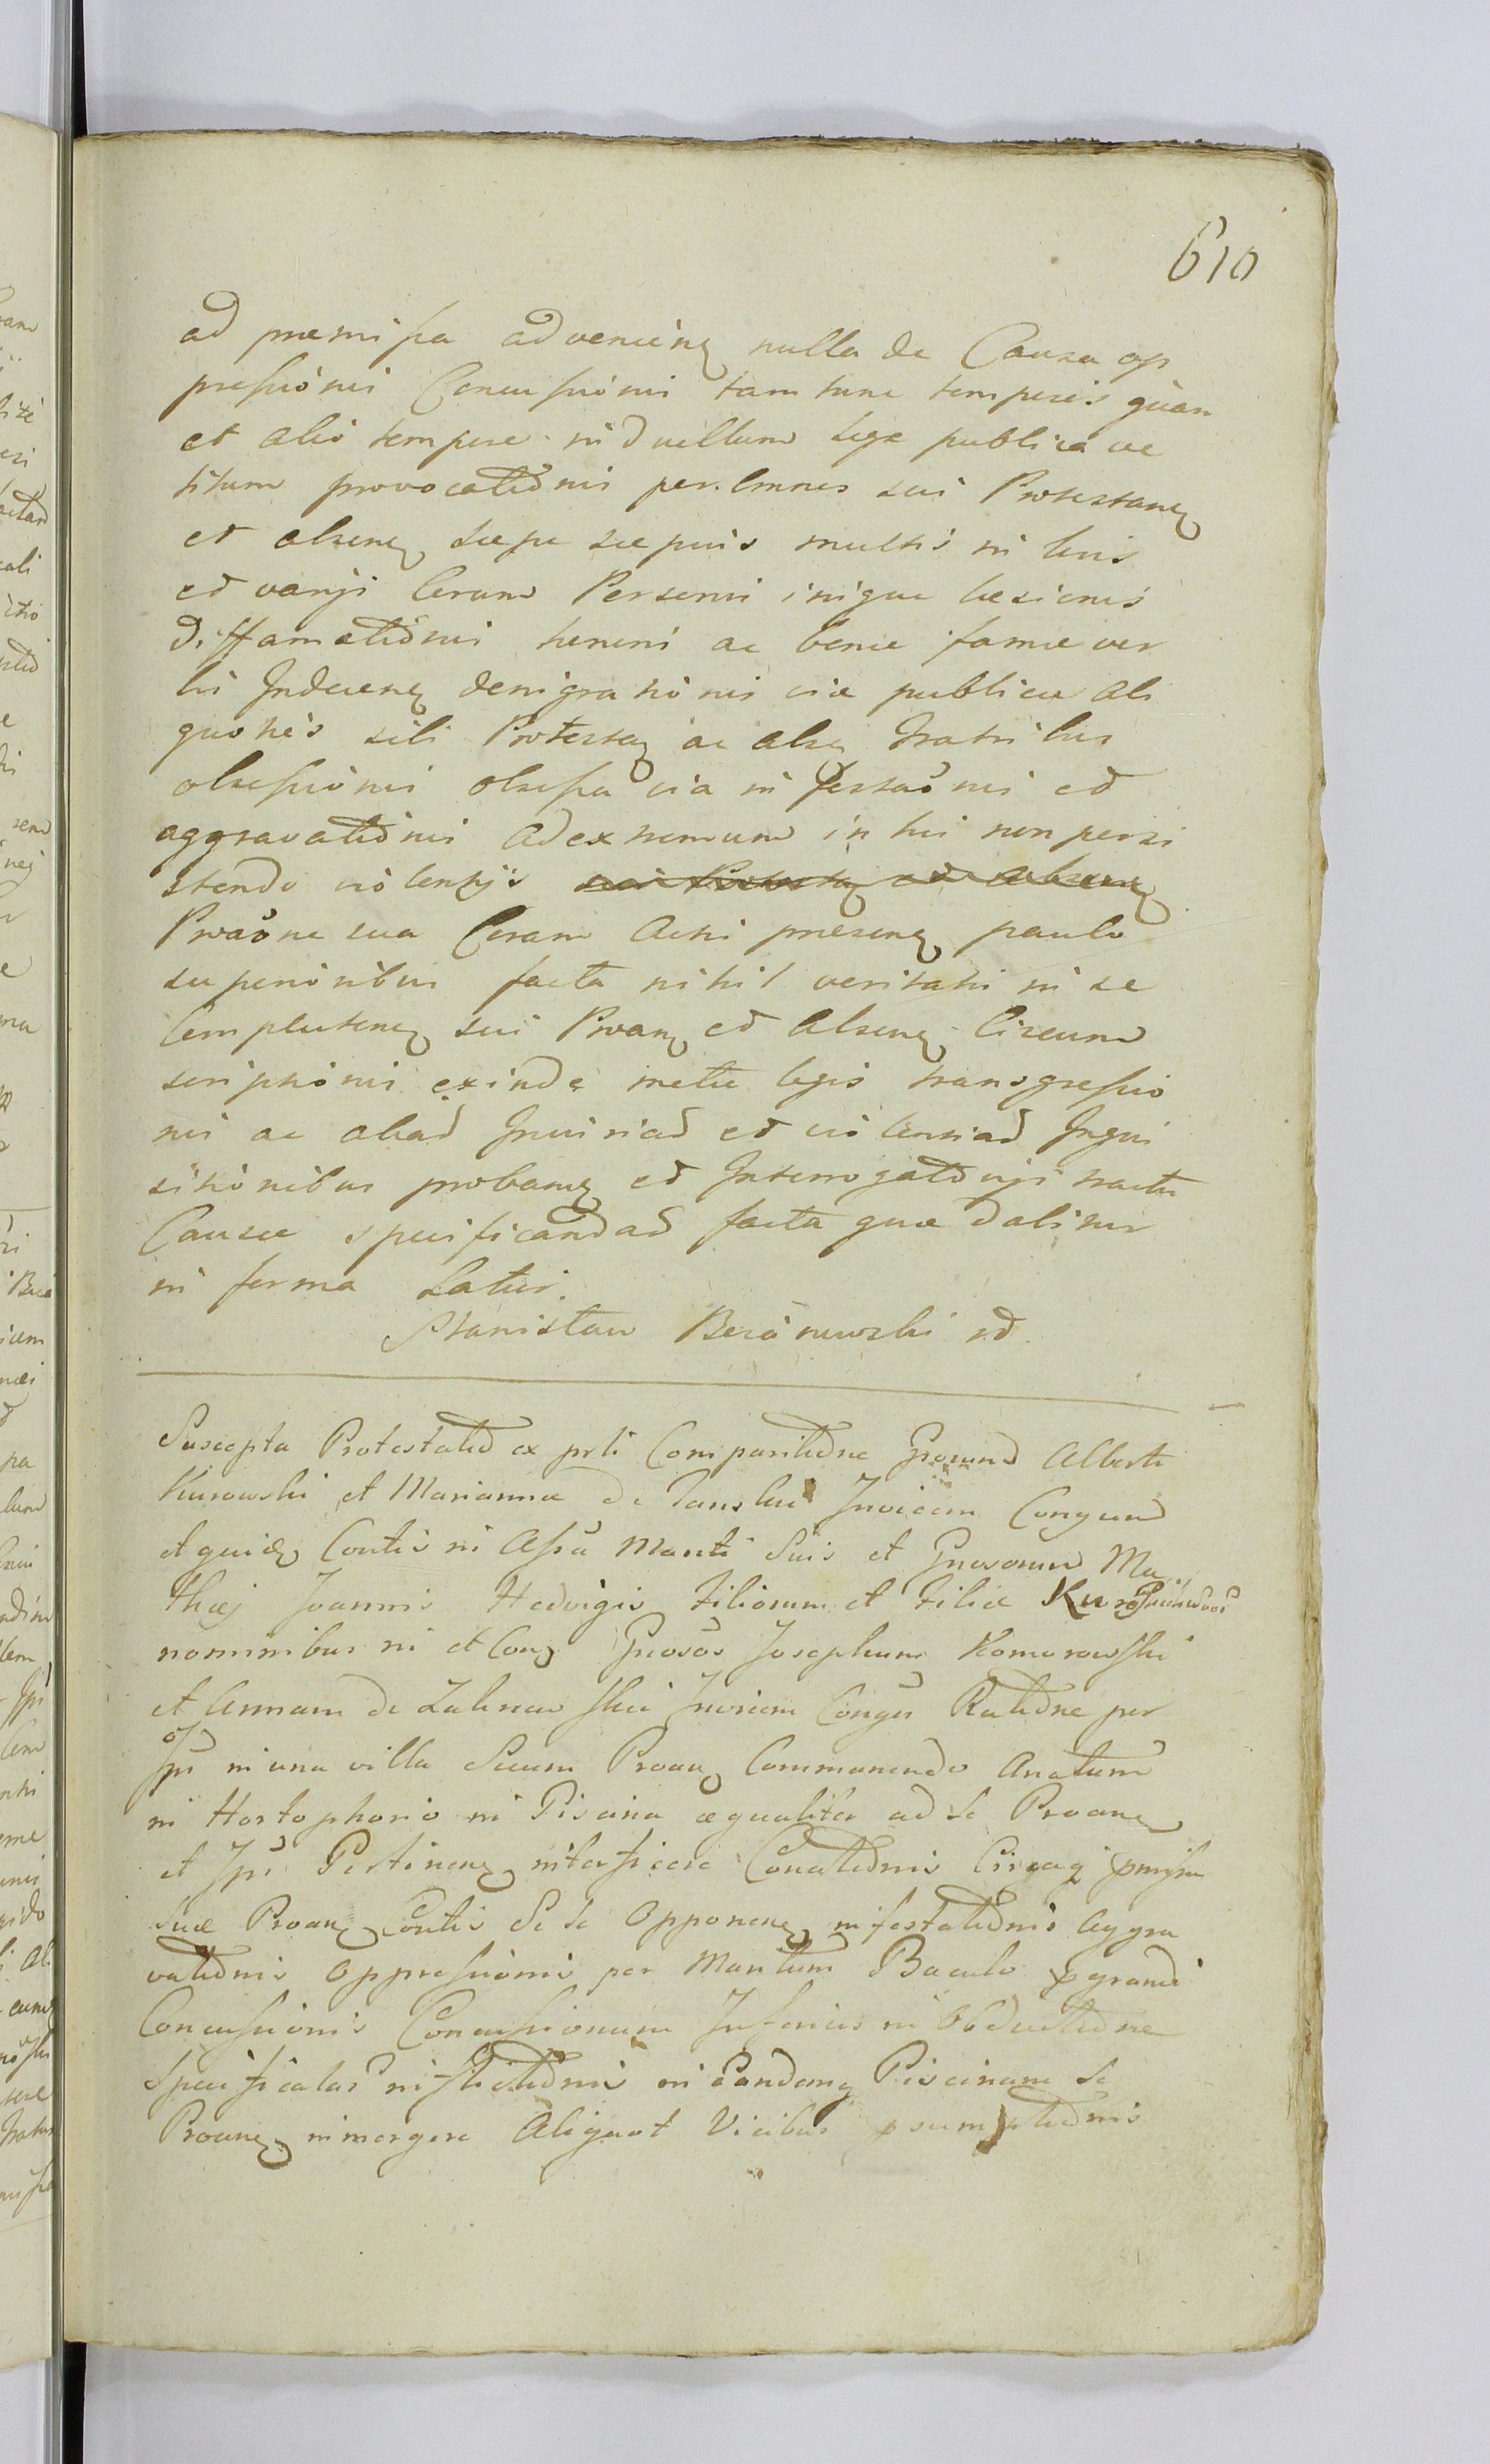 610
ad præmissa advenienꝗ nulla de Causa op
pressionis Concussionis tam tunc temporis quam
et alio tempore in duellum lege publica ve
titum provocationis per omnes sui Protestanꝗ
et absenꝗ sæpe sæpius multis in locis
et varys coram Personis inique læsionis
diffamationis honoris ac bonæ famæ ver
bis Indecenꝗ denigrationis via publica ali
quoties sibi Protestaꝗ ac absꝗ fratribus
obsessionis obsessa via infestaõnis et
aggravationis ad extremum in his non persi
stendo violentys
Prõaõne sua Coram Actis præsenꝗ paulo
superioribus facta nihil veritatis in se
Complectenꝗ sui Proanꝗ et Absenꝗ Circum
scriptionis exinde metæ legis transgressio
nis ac aliad Iniuriad et violentiad Inqui
sitionibus probanꝗ et Interrogatorys tractu
Causæ specificandad facta quæ dabitur
in forma Latius.
Stanisław Bero nowski
Suscepta Protestatio ex prti Comparitione Grosorum Alberti
Kurowski et Mariannæ de Invicem Conjgum
et quidꝗ Contis in Assa Mariti Sui et Gnosorum Ma
thæj Joannis Hedvigis filiorum et filiæ Kuro
nominibus in et Conꝗ Gnosos Josephum Komorowski
et Annam de Invicem Conges Ratione per
Ipos in una villa Secum Proanꝗ Commanendo Anatum
in Hortophorio in Piscina æqualiter ad se Proanꝗ
et Ipos Pertinenꝗ interficere Conationis Circaꝗ pmissa
Suæ Proanꝗ Contis Se se Opponenꝗ infestationis Aggra
vationis Oppressionis per Maritum Baculo pgrandi
Concussionis Concussionum Inferius in Obductione
Specificatas inflictionis in Eandemꝗ Piscinam se
Proanꝗ inmergere Aliquot Vicibus psumptionis